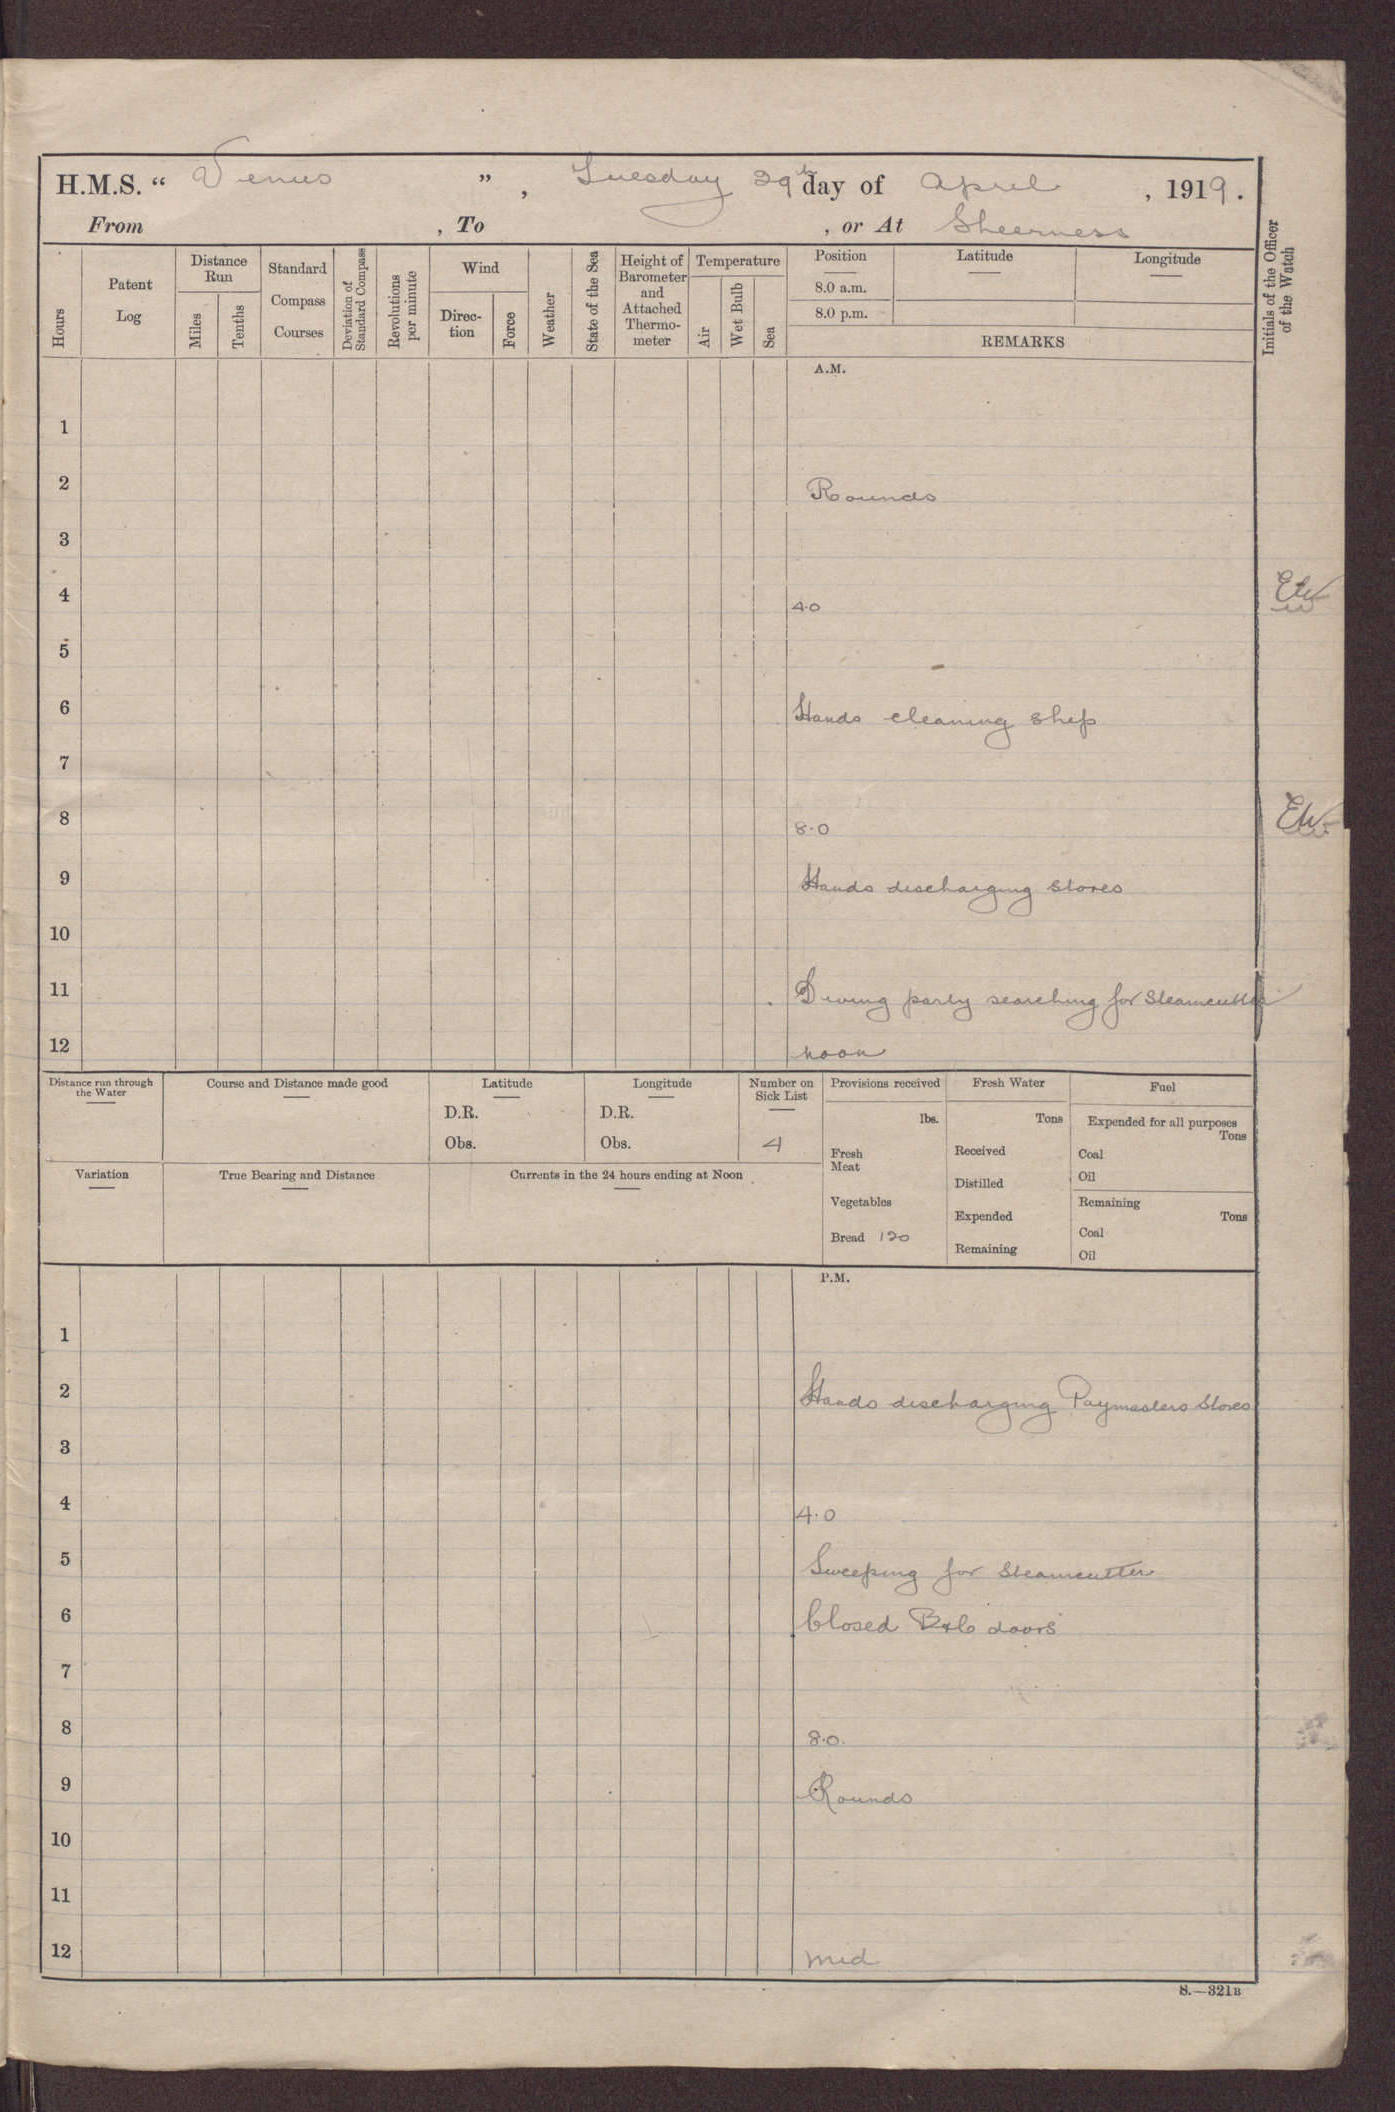 H.M.S. “ Venus ” , Tuesday 29th day of April , 1919.
From , To , or At Sheerness
Hours
Patent Log
Distance Run
Miles
Tenths
Standard Compass Courses
Deviation of Standard Compass
Revolutions per minute
Wind
Direc-tion
Force
Weather
State of the Sea
Height of Barometer and Attached Thermo-meter
Temperature
Air
Wet Bulb
Sea
Position
8.0 a.m.
8.0 p.m.
Latitude
Longitude
REMARKS
Initials of the Officer of the Watch
A.M.
1
2 Rounds
3
4 4.0
5
6 Hands cleaning ship
7
8 8.0
9 Hands discharging stores
10
11 Diving party searching for Steamcutter
12 noon
Distance run through the Water
Course and Distance made good
Latitude
D.R.
Obs.
Longitude
D.R.
Obs.
Number on Sick List
4
Provisions received
lbs.
Fresh Meat
Vegetables
Bread 120
Fresh Water
Tons
Received
Distilled
Expended
Remaining
Fuel
Expended for all purposes
Tons
Coal
Oil
Remaining
Tons
Coal
Oil
Variation
True Bearing and Distance
Currents in the 24 hours ending at Noon
P.M.
1
2 Hands discharging Paymasters Stores
3
4 4.0
5 Sweeping for Steamcutter
6 Closed B&C doors
7
8 8.0.
9 Rounds
10
11
12 mid
S.—321B